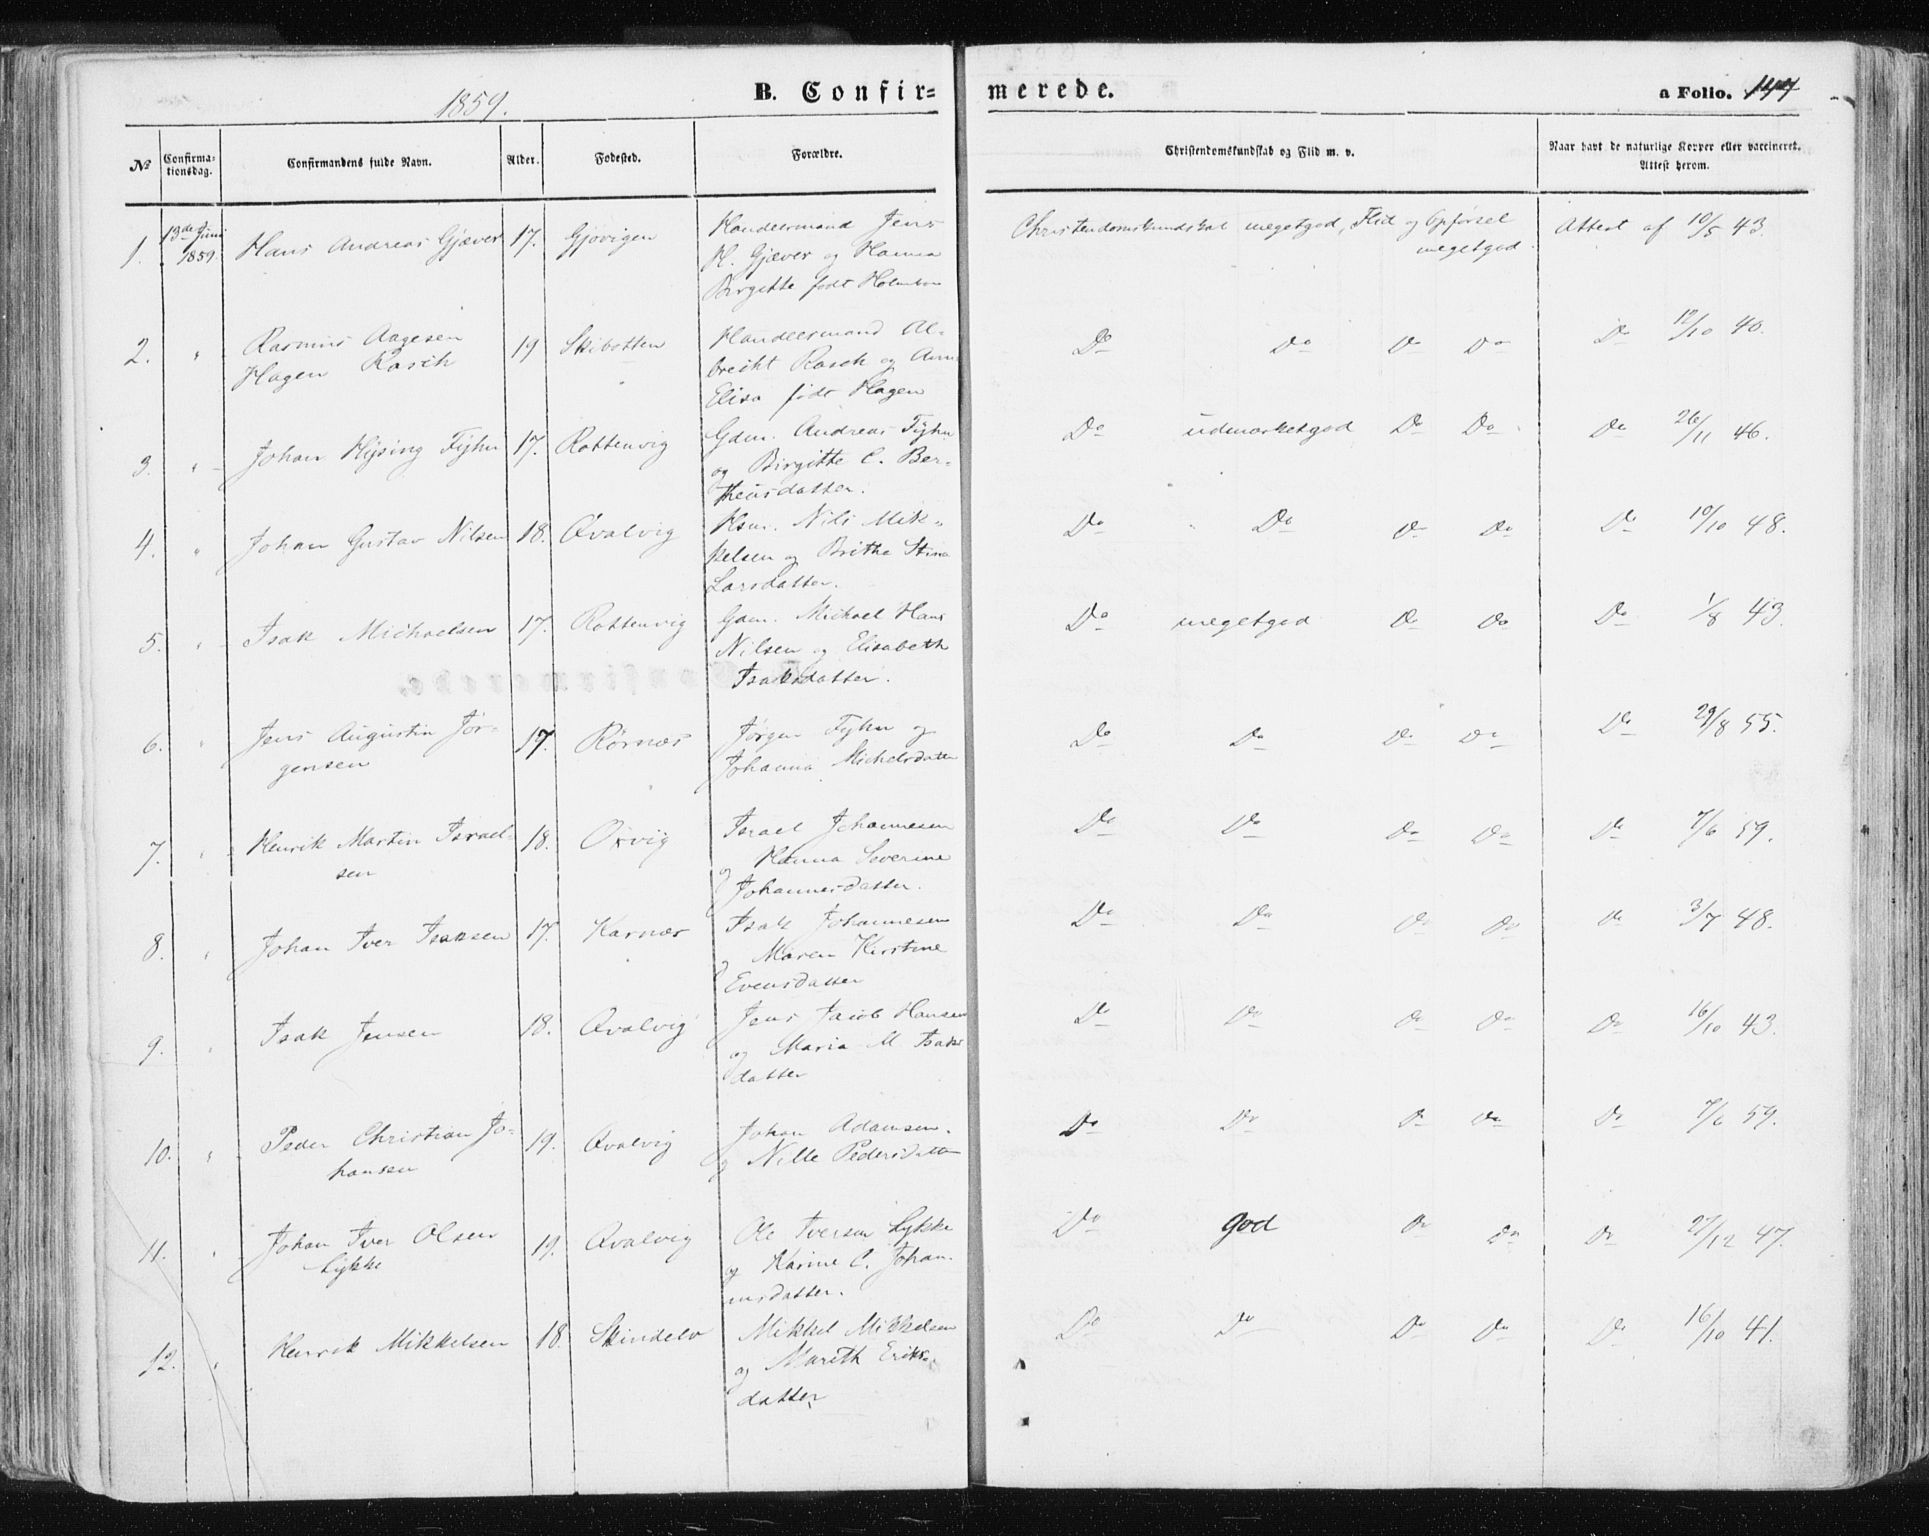 1859.
B. Confir=
merede.
a Folio. 144
№
Confirma-
tionsdag.
Confirmandens fulde Navn.
Alder.
Fødested.
Forældre.
Christendomskundskab og Flid m. v.
Naar havt de naturlige Kopper eller vaccineret.
Attest herom.
1. 13de Juni 1859. Hans Andreas Gjæver 17. Gjøvigen
Handelsmand Jens
H. Gjæver og Hanna
Birgitte født Holmboe
Christendomskundskab megetgod, Flid og Opførsel
megetgod.
Attest af 10/5 43.
2. " Rasmus Aagesen
Hagen Rasch
19 Skibotten
Handelsmand Al-
brecht Rasch og Anna
Elisa født Hagen
Do Do Do Do Do 12/10 40.
3. " Johan Hysing Fyhn 17. Rottenvig
Gdm. Andreas Fyhn
og Birgitte C. Ber-
theusdatter.
Do udmærketgod Do Do Do 26/11 46.
4. " Johan Gustav Nilsen 18. Qvalvig
Hsm. Nils Mik-
kelsen og Britha Stina
Larsdatter.
Do " Do Do Do Do 10/10 48.
5. " Isak Michaelsen 17. Rottenvig
Gdm. Michael Hans
Nilsen og Elisabeth
Isaksdatter.
Do megetgod Do Do Do 1/8 43.
6. " Jens Augustin Jør-
gensen
17. Rørnæs
Jørgen Fyhn og
Johanna Michelsdatter
Do Do Do Do Do 29/8 55.
7. " Henrik Martin Israel-
sen
18. Oxvig
Israel Johannesen
og Hanna Severine
Johannesdatter.
Do Do Do Do Do 7/6 59.
8. " Johan Iver Isaksen 17. Karnæs
Isak Johannesen
og Maren Kirstine
Evensdatter
Do Do Do Do Do 3/7 48.
9. " Isak Jensen 18. Qvalvig
Jens Jacob Hansen
og Maria M Isaks
datter
Do Do Do Do Do 16/10 43.
10. " Peder Christian Jo-
hansen
19. Qvalvig
Johan Adamsen
og Nille Pedersdatter
Do Do Do Do Do 7/6 59.
11. " Johan Iver Olsen
Lykke
19. Qvalvig
Ole Iversen Lykke
og Karine C. Johan-
nesdatter.
Do god Do Do Do 27/12 47.
12. " Henrik Mikkelsen 18. Skindelv
Mikkel Mikkelsen
og Marith Eriks-
datter
Do Do Do Do Do 16/10 41.